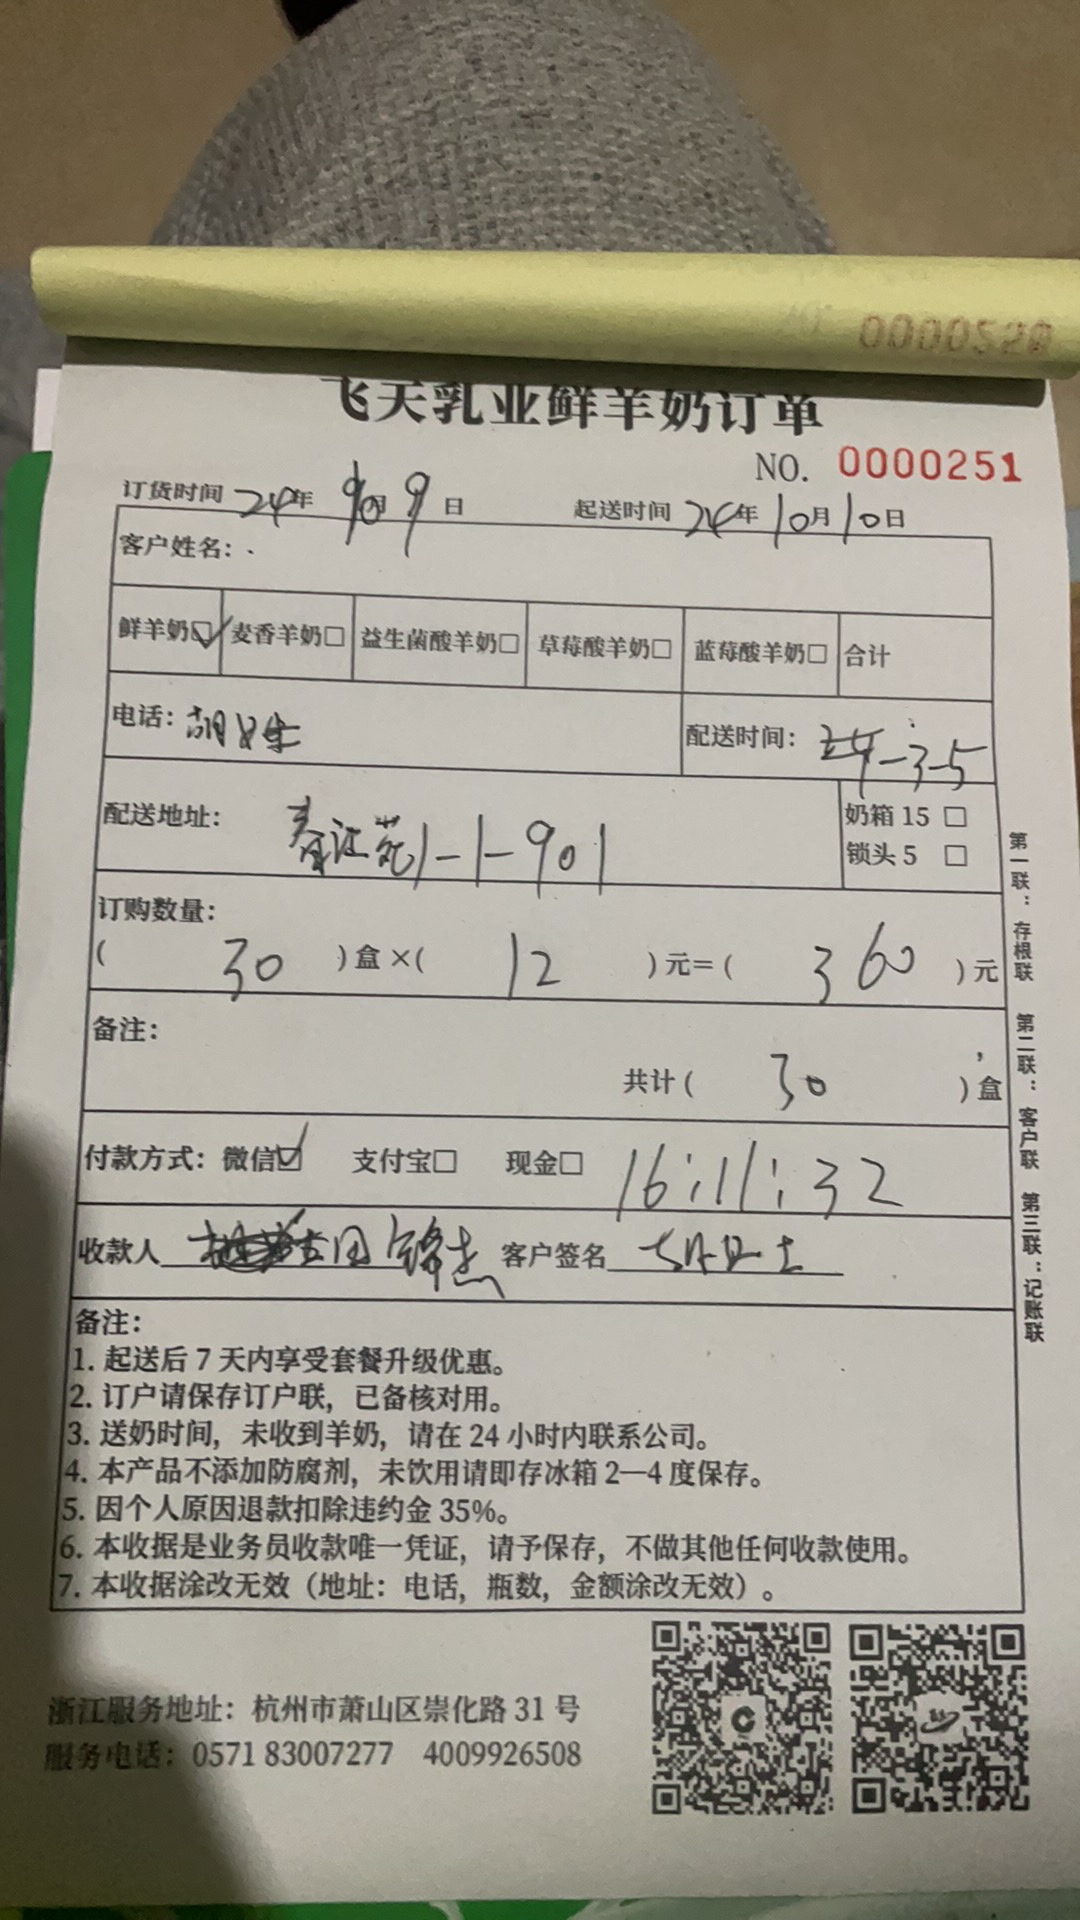 0000250
飞天乳业鲜羊奶订单
NO. 0000251
订货时间 24年 9月 9日 起送时间 24年 10月 10日
客户姓名：
鲜羊奶☑ 麦香羊奶□ 益生菌酸羊奶□ 草莓酸羊奶□ 蓝莓酸羊奶□ 合计
电话：胡女士 配送时间：-3-5
配送地址：春江苑1-1-901 奶箱 15 □
锁头 5 □
订购数量：
( 30 ) 盒 ×( 12 ) 元＝( 360 ) 元
备注：
共计 ( 30 ) 盒
付款方式：微信☑ 支付宝□ 现金□ 16:11:32
收款人 田锋杰 客户签名 胡女士
备注：
1. 起送后 7 天内享受套餐升级优惠。
2. 订户请保存订户联，已备核对用。
3. 送奶时间，未收到羊奶，请在 24 小时内联系公司。
4. 本产品不添加防腐剂，未饮用请即存冰箱 2—4 度保存。
5. 因个人原因退款扣除违约金 35%。
6. 本收据是业务员收款唯一凭证，请予保存，不做其他任何收款使用。
7. 本收据涂改无效（地址：电话，瓶数，金额涂改无效）。
第一联：存根联 第二联：客户联 第三联：记账联
浙江服务地址：杭州市萧山区崇化路 31 号
服务电话：0571 83007277 4009926508